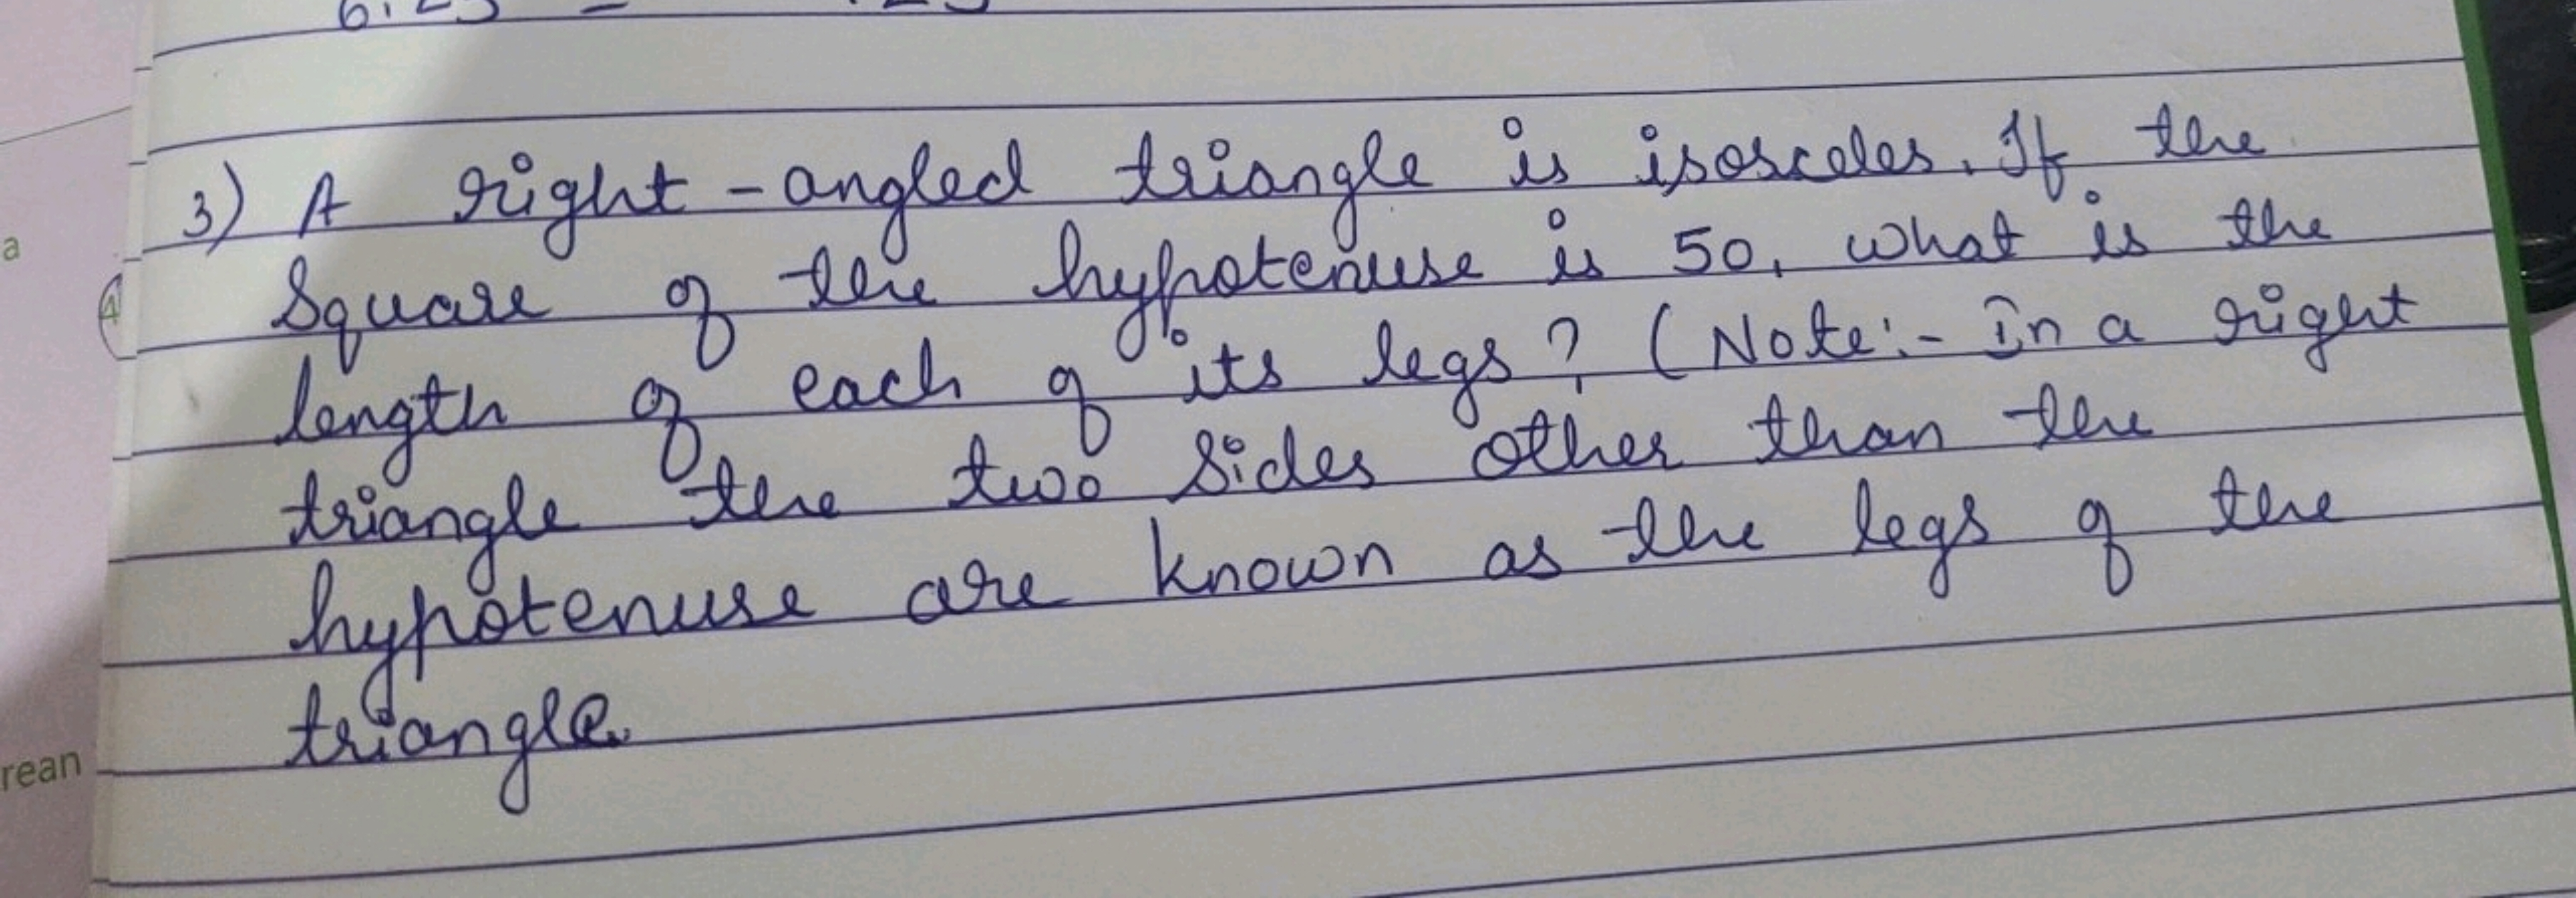 3) A right-angled triangle is isosceles. If the
Square of the hypotenuse is 50, what is the
length of each of its legs? (Note:- In a right
triangle the two sides other than the
hypotenuse are known as the legs of the
triangle.
a
4
rean